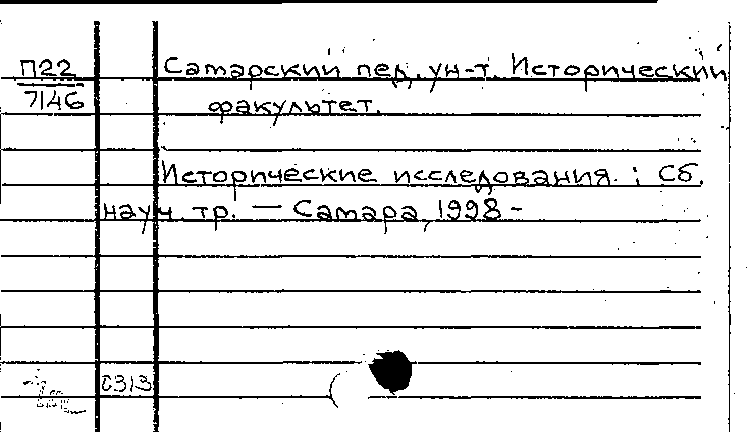 П22 Самарский пед. ун-т. Исторический
7146 факультет.
Исторические исследования. : Сб.
науч. тр. — Самара, 1998 -
0313